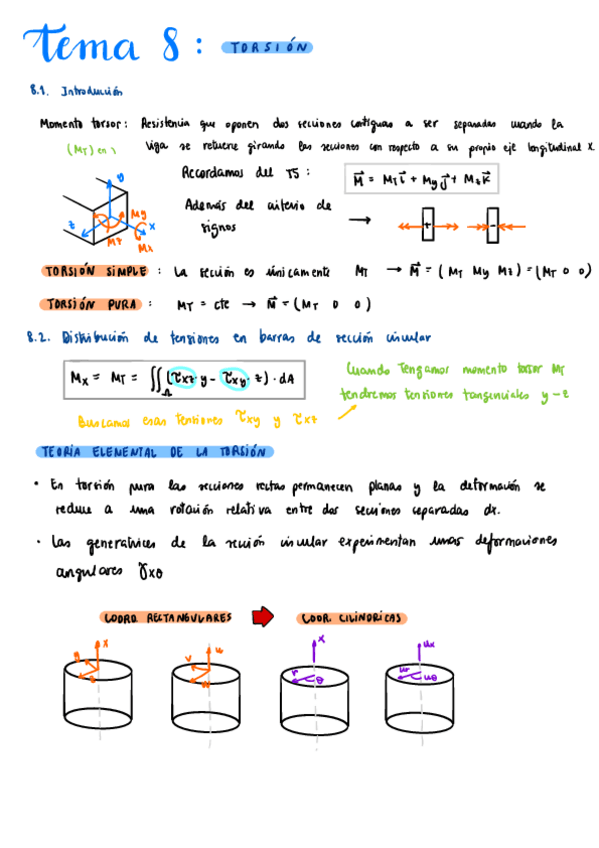 Tema 8: TORSIÓN
8.1. Introducción
Momento torsor: Resistencia que oponen dos secciones contiguas a ser separadas cuando la
(MT) en x viga se retuerce girando las secciones con respecto a su propio eje longitudinal X.
Recordamos del T5: M⃗ = MT i⃗ + My j⃗ + Mz k⃗
Además del criterio de
signos → + -
y z x My Mz Mx
TORSIÓN SIMPLE: La sección es únicamente MT → M⃗ = (MT My Mz) = (MT 0 0)
TORSIÓN PURA: MT = cte → M⃗ = (MT 0 0)
8.2. Distribución de tensiones en barras de sección circular
Mx = MT = ∬Ω (τxz y - τxy · z) · dA
Cuando tengamos momento torsor MT
tendremos tensiones tangenciales y-z
Buscamos esas tensiones τxy y τxz
TEORÍA ELEMENTAL DE LA TORSIÓN
• En torsión pura las secciones rectas permanecen planas y la deformación se
reduce a una rotación relativa entre dos secciones separadas dx.
• Las generatrices de la sección circular experimentan unas deformaciones
angulares γxθ
COORD. RECTANGULARES COOR. CILÍNDRICAS
x u x ux
v r θ ur uθ